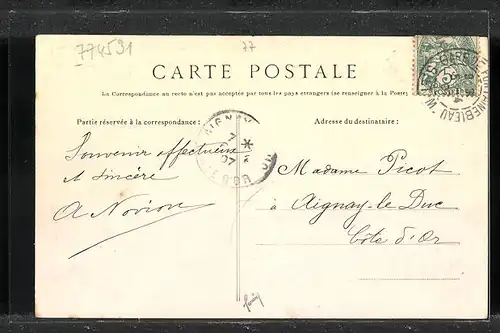 774591
77
CARTE POSTALE
La Correspondance au recto n'est pas acceptée par tous les pays étrangers (se renseigner à la Poste)
Partie réservée à la correspondance:
Adresse du destinataire:
Souvenir affectueux
et sincère
A Novion
Madame Picot
à Aignay-le Duc
Côte d'Or
AIGNAY
7
07
FONTAINEBLEAU
5